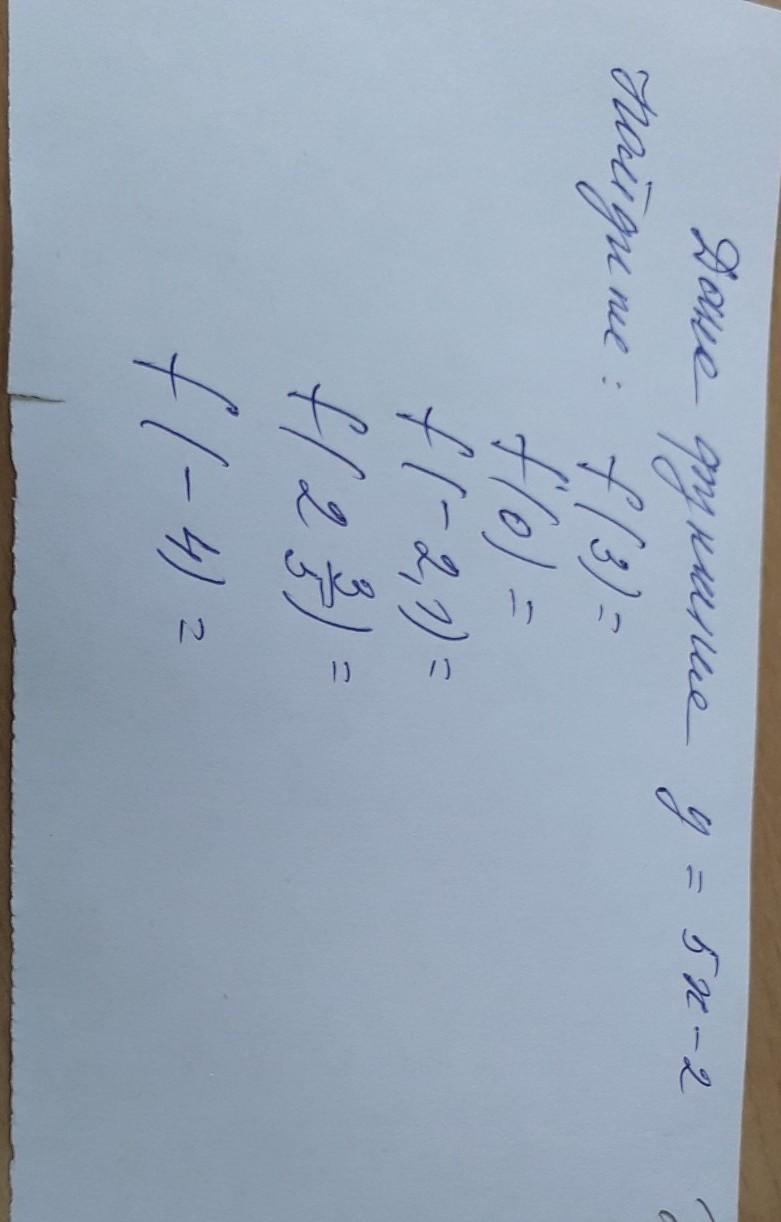 Дана функция y = 5x - 2
Найдите: f(3) =
f(0) =
f(-2,1) =
f(2 3/5) =
f(-4) =